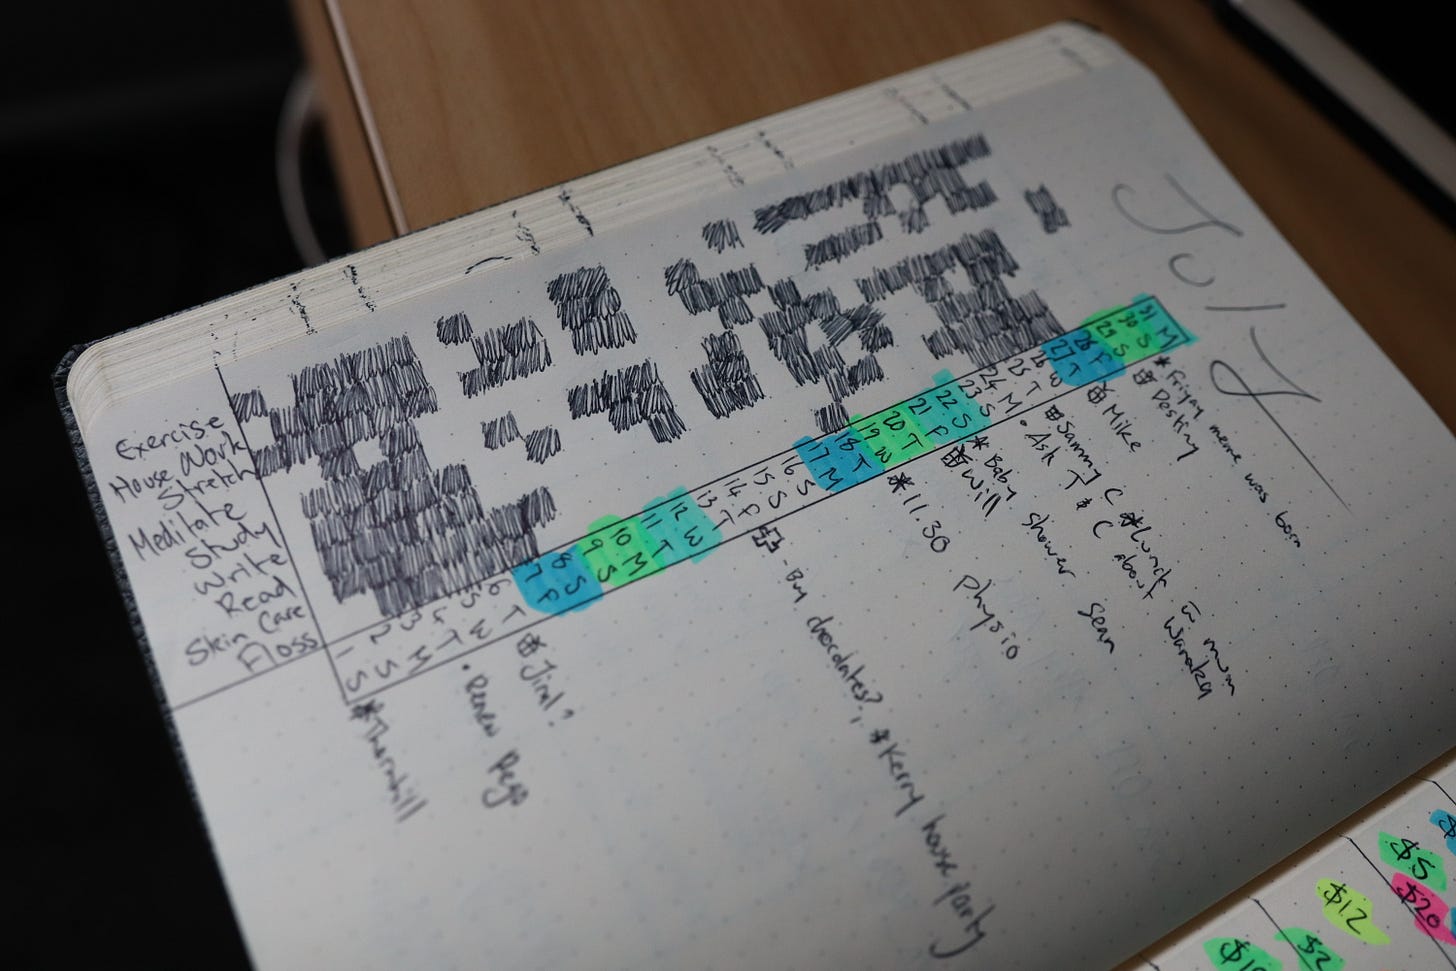 JULY
Exercise
House Work
Stretch
Meditate
Study
Write
Read
Skin Care
Floss
1 S * Thornhill
2 S
3 M
4 T • Renew Rego
5 W
6 T Jind?
7 F
8 S
9 S
10 M
11 T
12 W
13 T
14 F - Buy chocolates?, * Kerry house party
15 S
16 S
17 M
18 T * 11.30 physio
19 W
20 T Will
21 F * Baby shower Sean
22 S
23 S • Ask T & C about Wanaka
24 M Sammy C * Lunch mum
25 T
26 W Mike
27 T
28 F Destiny
29 S * meme was born
30 S
31 M
$5
$20
$12
$2